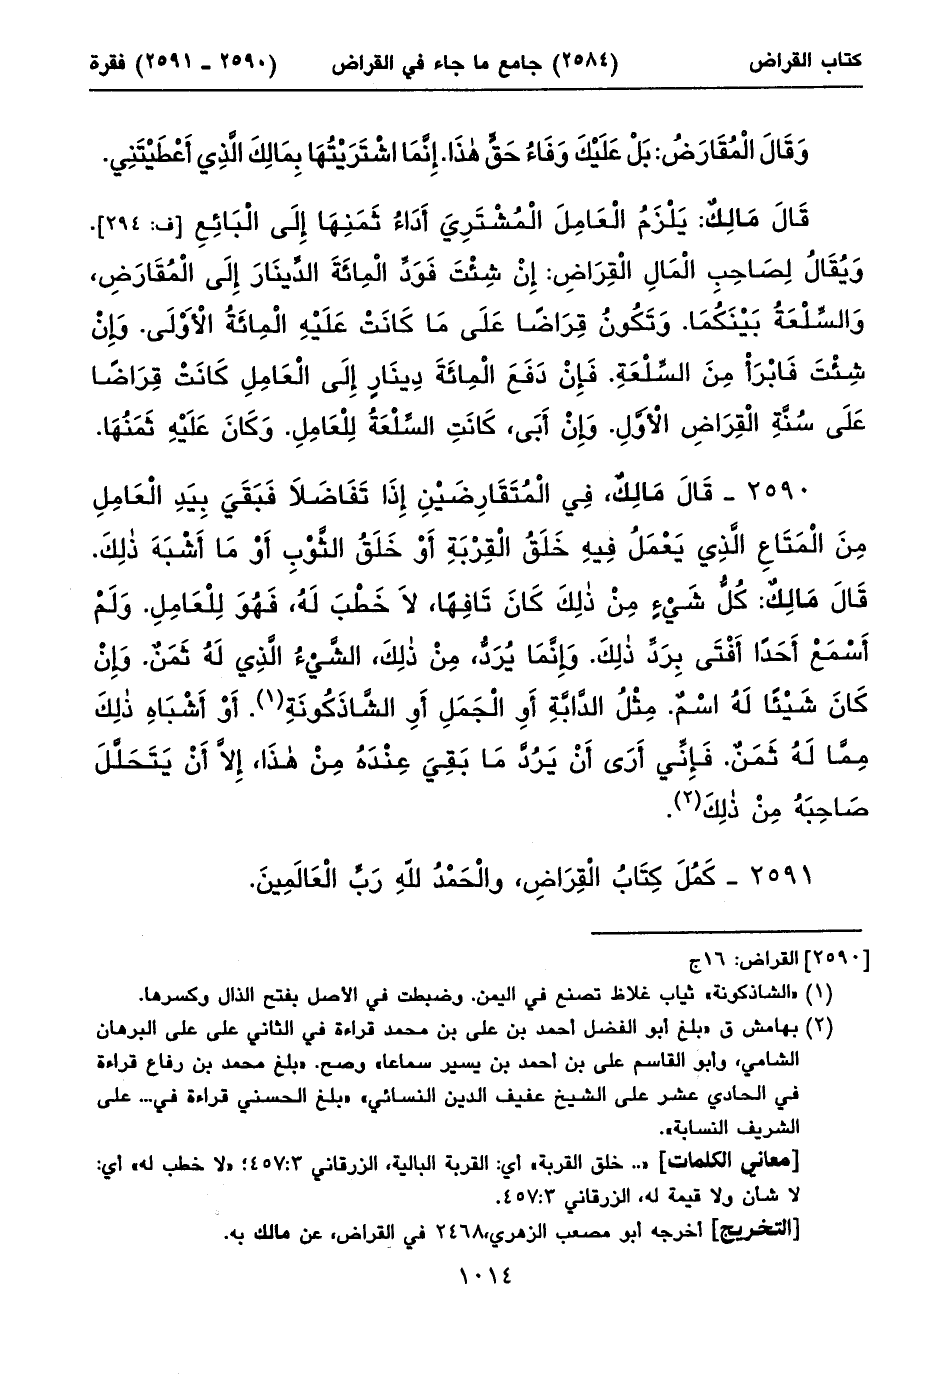 كتاب القراض (٢٥٨٤) جامع ما جاء في القراض (٢٥٩٠ ـ ٢٥٩١) فقرة
وَقَالَ الْمُقَارَضُ: بَلْ عَلَيْكَ وَفَاءُ حَقِّ هٰذَا. إِنَّمَا اشْتَرَيْتُهَا بِمَالِكَ الَّذِي أَعْطَيْتَنِي.
قَالَ مَالِكٌ: يَلْزَمُ الْعَامِلَ الْمُشْتَرِيَ أَدَاءُ ثَمَنِهَا إِلَى الْبَائِعِ [ف: ٢٩٤].
وَيُقَالُ لِصَاحِبِ الْمَالِ الْقِرَاضِ: إِنْ شِئْتَ فَوَدِّ الْمِائَةَ الدِّينَارَ إِلَى الْمُقَارَضِ،
وَالسِّلْعَةُ بَيْنَكُمَا. وَتَكُونُ قِرَاضًا عَلَى مَا كَانَتْ عَلَيْهِ الْمِائَةُ الْأَوْلَى. وَإِنْ
شِئْتَ فَابْرَأْ مِنَ السِّلْعَةِ. فَإِنْ دَفَعَ الْمِائَةَ دِينَارٍ إِلَى الْعَامِلِ كَانَتْ قِرَاضًا
عَلَى سُنَّةِ الْقِرَاضِ الْأَوَّلِ. وَإِنْ أَبَى، كَانَتِ السِّلْعَةُ لِلْعَامِلِ. وَكَانَ عَلَيْهِ ثَمَنُهَا.
٢٥٩٠ ـ قَالَ مَالِكٌ، فِي الْمُتَقَارِضَيْنِ إِذَا تَفَاضَلاَ فَبَقَيَ بِيَدِ الْعَامِلِ
مِنَ الْمَتَاعِ الَّذِي يَعْمَلُ فِيهِ خَلَقُ الْقِرْبَةِ أَوْ خَلَقُ الثَّوْبِ أَوْ مَا أَشْبَهَ ذٰلِكَ.
قَالَ مَالِكٌ: كُلُّ شَيْءٍ مِنْ ذٰلِكَ كَانَ تَافِهًا، لاَ خَطْبَ لَهُ، فَهُوَ لِلْعَامِلِ. وَلَمْ
أَسْمَعْ أَحَدًا أَفْتَى بِرَدِّ ذٰلِكَ. وَإِنَّمَا يُرَدُّ، مِنْ ذٰلِكَ، الشَّيْءُ الَّذِي لَهُ ثَمَنٌ. وَإِنْ
كَانَ شَيْئًا لَهُ اسْمٌ. مِثْلُ الدَّابَّةِ أَوِ الْجَمَلِ أَوِ الشَّاذَكُونَةِ(١). أَوْ أَشْبَاهِ ذٰلِكَ
مِمَّا لَهُ ثَمَنٌ. فَإِنِّي أَرَى أَنْ يَرُدَّ مَا بَقِيَ عِنْدَهُ مِنْ هٰذَا، إِلاَّ أَنْ يَتَحَلَّلَ
صَاحِبَهُ مِنْ ذٰلِكَ(٢).
٢٥٩١ ـ كَمُلَ كِتَابُ الْقِرَاضِ، والْحَمْدُ للهِ رَبِّ الْعَالَمِينَ.
[٢٥٩٠] القراض: ١٦ج
(١) «الشاذكونة» ثياب غلاظ تصنع في اليمن. وضبطت في الأصل بفتح الذال وكسرها.
(٢) بهامش ق «بلغ أبو الفضل أحمد بن على بن محمد قراءة في الثاني على على البرهان
الشامي، وأبو القاسم على بن أحمد بن يسير سماعا» وصح. «بلغ محمد بن رفاع قراءة
في الحادي عشر على الشيخ عفيف الدين النسائي» «بلغ الحسني قراءة في... على
الشريف النسابة».
[معاني الكلمات] «.. خلق القربة» أي: القربة البالية، الزرقاني ٤٥٧:٣؛ «لا خطب له» أي:
لا شان ولا قيمة له، الزرقاني ٤٥٧:٣.
[التخريج] أخرجه أبو مصعب الزهري،٢٤٦٨ في القراض، عن مالك به.
١٠١٤